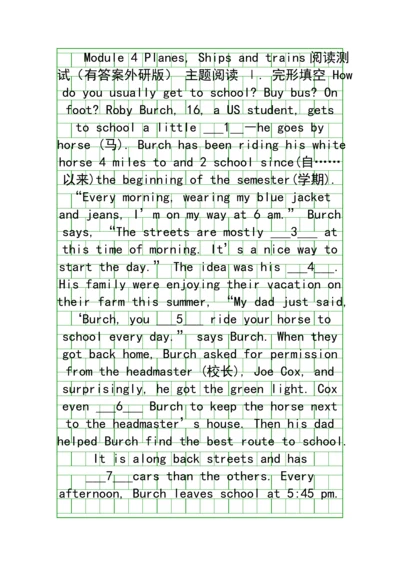 Module 4 Planes, Ships and trains阅读测
试（有答案外研版） 主题阅读 Ⅰ. 完形填空 How
do you usually get to school? Buy bus? On
foot? Roby Burch, 16, a US student, gets
to school a little ___1__—he goes by
horse (马). Burch has been riding his white
horse 4 miles to and 2 school since(自……
以来)the beginning of the semester(学期).
“Every morning, wearing my blue jacket
and jeans, I’m on my way at 6 am.” Burch
says, “The streets are mostly ___3___ at
this time of morning. It’s a nice way to
start the day.” The idea was his ___4___.
His family were enjoying their vacation on
their farm this summer, “My dad just said,
‘Burch, you ___5___ ride your horse to
school every day.” says Burch. When they
got back home, Burch asked for permission
from the headmaster (校长), Joe Cox, and
surprisingly, he got the green light. Cox
even ___6___ Burch to keep the horse next
to the headmaster’s house. Then his dad
helped Burch find the best route to school.
It is along back streets and has
___7___cars than the others. Every
afternoon, Burch leaves school at 5:45 pm.